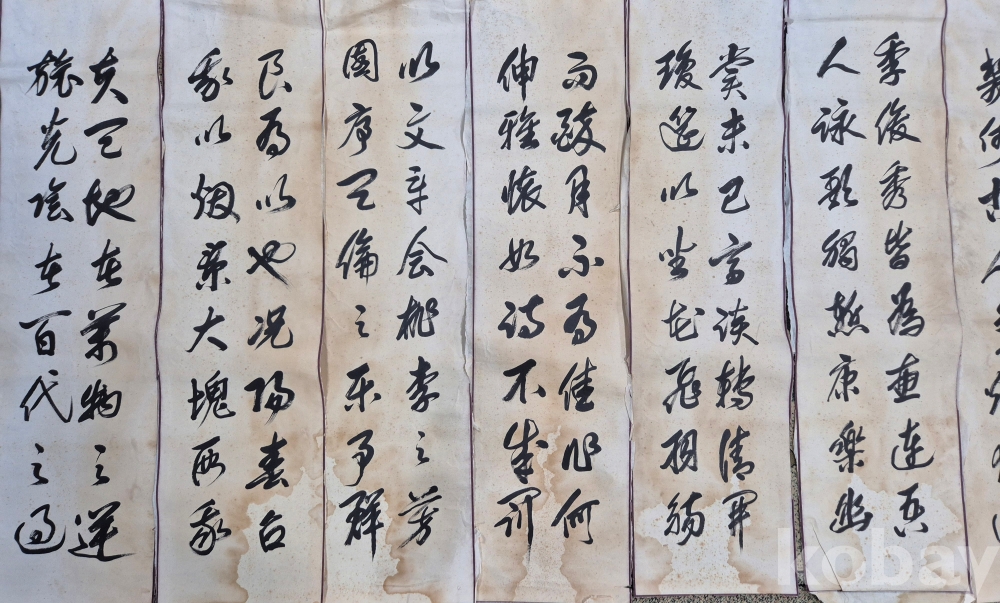 幾何古人秉燭夜
季俊秀皆為惠連吾
人詠歌獨慚康樂幽
賞未已高談轉清開
瓊筵以坐花飛羽觴
而醉月不有佳作何
伸雅懷如詩不成罰
以文章会桃李之芳
園序天倫之樂事群
良有以也况陽春召
我以烟景大塊假我
夫天地者萬物之逆
旅光陰者百代之過
kobay